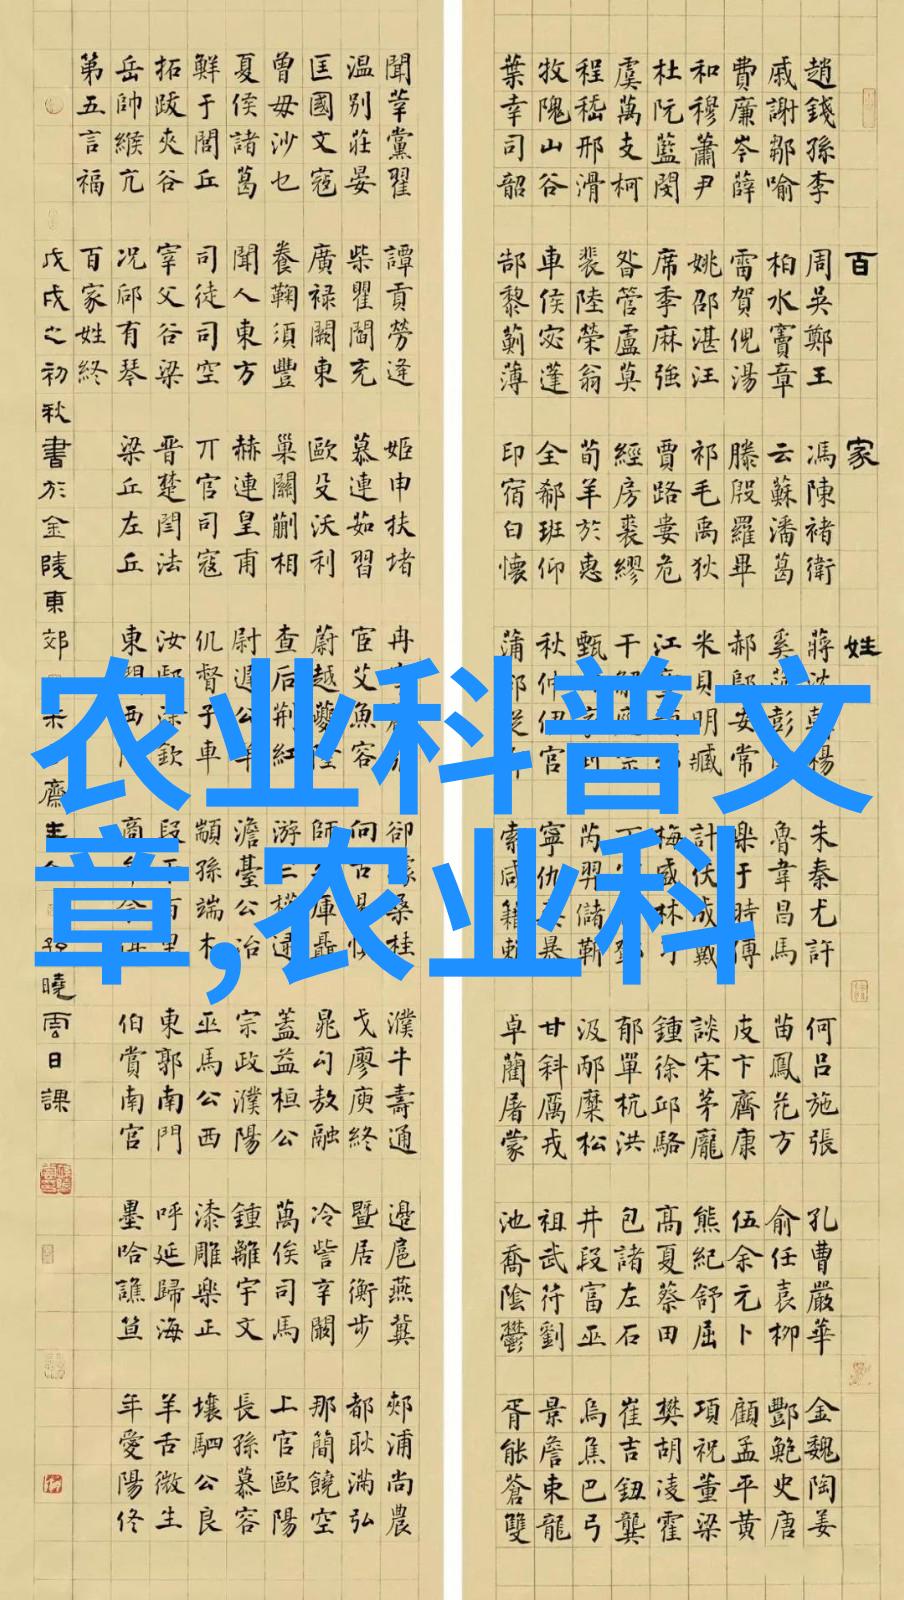 百家姓
趙錢孫李 周吳鄭王 馮陳褚衛 蔣沈韓楊 朱秦尤許 何呂施張 孔曹嚴華 金魏陶姜
戚謝鄒喻 柏水竇章 云蘇潘葛 奚范彭 魯韋昌馬 苗鳳花方 俞任袁柳 酆鮑史唐
費廉岑薛 雷賀倪湯 滕殷羅畢 郝鄔安常 樂于時傅 皮卞齊康 伍余元卜 顧孟平黃
和穆蕭尹 姚邵湛汪 祁毛禹狄 米貝明臧 計伏成戴 談宋茅龐 熊紀舒屈 項祝董梁
杜阮藍閔 席季麻強 賈路婁危 江 梅盛林刁 鍾徐邱駱 高夏蔡田 樊胡凌霍
虞萬支柯 昝管盧莫 經房裘繆 干解應宗 丁 郁單杭洪 包諸左石 崔吉鈕龔
程嵇邢滑 裴陸榮翁 荀羊於惠 甄 家封 芮羿儲靳 汲邴糜松 井段富巫 烏焦巴弓
牧隗山谷 車侯宓蓬 全郗班仰 秋仲伊宮 寧仇 暴 甘斜厲戎 祖武符劉 景詹束龍
葉幸司韶 郜黎薊薄 印宿白懷 蒲邰從 索咸籍賴 卓藺屠蒙 池喬陰鬱 胥能蒼雙
聞莘黨翟 譚貢勞逄 姬申扶堵 冉 卻璩桑桂 濮牛壽通 邊扈燕冀 郟浦尚農
温別莊晏 柴瞿閻充 慕連茹習 宦艾魚容 向古易慎 戈廖庾終 暨居衡步 都耿滿弘
匡國文寇 廣祿闕東 歐殳沃利 蔚越夔隆 師 庫聶 晁勾敖融 冷訾辛闞 那簡饒空
曾毋沙乜 養鞠須豐 巢關蒯相 查后荊紅 游竺權逯 蓋益桓公 萬俟司馬 上官歐陽
夏侯諸葛 聞人東方 赫連皇甫 尉遲公羊 澹臺公冶 宗政濮陽 鍾離宇文 長孫慕容
鮮于閭丘 司徒司空 亓官司寇 仉督子車 顓孫端木 巫馬公西 漆雕樂正 壤駟公良
拓跋夾谷 宰父谷梁 晉楚閆法 汝鄢涂欽 段干百里 東郭南門 呼延歸海 羊舌微生
岳帥緱亢 況郈有琴 梁丘左丘 東門西門 商牟佘佴 伯賞南宮 墨哈譙笪 年愛陽佟
第五言福 百家姓終
戊戌之初秋書於金陵東郊 齋主 孫曉雲日課
农业科普文
章,农业科